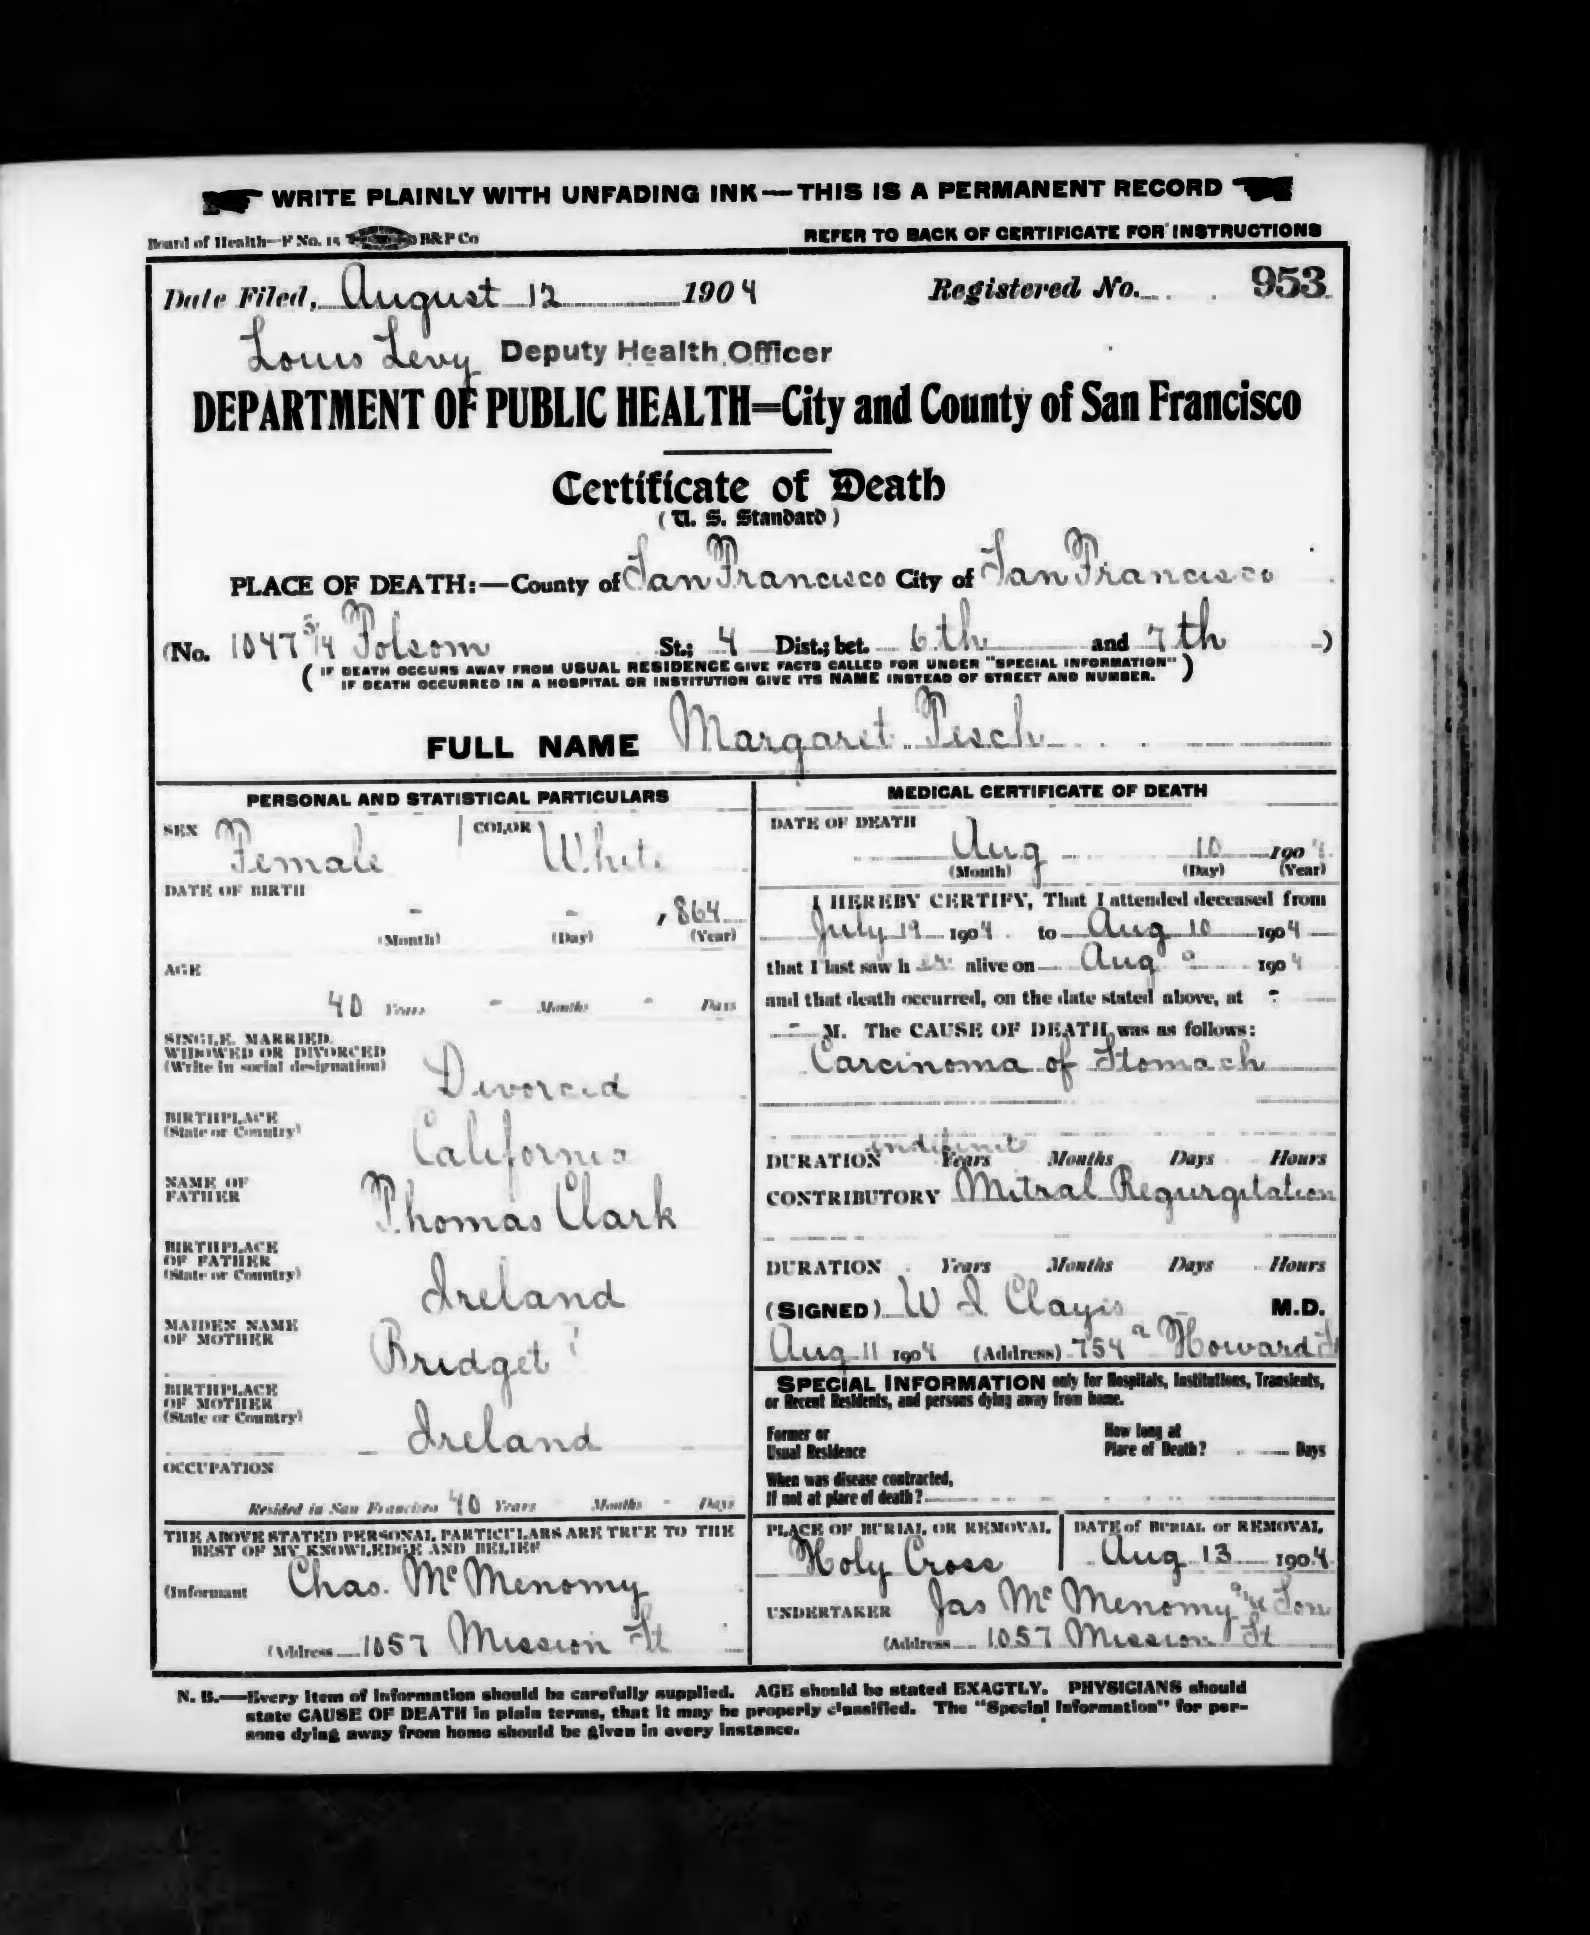 WRITE PLAINLY WITH UNFADING INK—THIS IS A PERMANENT RECORD
Board of Health—F No. 15 B&P Co
REFER TO BACK OF CERTIFICATE FOR INSTRUCTIONS
Date Filed, August 12 1904 Registered No. 953
Louis Levy Deputy Health Officer
DEPARTMENT OF PUBLIC HEALTH=City and County of San Francisco
Certificate of Death
(U. S. Standard)
PLACE OF DEATH:—County of San Francisco City of San Francisco
(No. 1047 3/4 Folsom St.; 4 Dist.; bet. 6th and 7th )
( IF DEATH OCCURS AWAY FROM USUAL RESIDENCE GIVE FACTS CALLED FOR UNDER "SPECIAL INFORMATION"
IF DEATH OCCURRED IN A HOSPITAL OR INSTITUTION GIVE ITS NAME INSTEAD OF STREET AND NUMBER. )
FULL NAME Margaret Pesch
PERSONAL AND STATISTICAL PARTICULARS
SEX Female COLOR White
DATE OF BIRTH
- - 1864
(Month) (Day) (Year)
AGE
40 Years - Months - Days
SINGLE, MARRIED,
WIDOWED OR DIVORCED
(Write in social designation)
Divorced
BIRTHPLACE
(State or Country)
California
NAME OF
FATHER
Thomas Clark
BIRTHPLACE
OF FATHER
(State or Country)
Ireland
MAIDEN NAME
OF MOTHER
Bridget ?
BIRTHPLACE
OF MOTHER
(State or Country)
Ireland
OCCUPATION
Resided in San Francisco 40 Years Months - Days
THE ABOVE STATED PERSONAL PARTICULARS ARE TRUE TO THE
BEST OF MY KNOWLEDGE AND BELIEF
(Informant Chas. McMenomy
(Address 1057 Mission St
MEDICAL CERTIFICATE OF DEATH
DATE OF DEATH
Aug 10 1904
(Month) (Day) (Year)
I HEREBY CERTIFY, That I attended deceased from
July 19 1904 to Aug 10 1904
that I last saw her alive on Aug 1904
and that death occurred, on the date stated above, at -
- M. The CAUSE OF DEATH was as follows:
Carcinoma of Stomach
indefinit
DURATION Years Months Days Hours
CONTRIBUTORY Mitral Regurgitation
DURATION Years Months Days Hours
(SIGNED) W I M.D.
Aug 11 1904 (Address) 754 a Howard St
SPECIAL INFORMATION only for Hospitals, Institutions, Transients,
or Recent Residents, and persons dying away from home.
Former or
Usual Residence
How long at
Place of Death? Days
When was disease contracted,
If not at place of death?
PLACE OF BURIAL OR REMOVAL
Holy Cross
DATE of BURIAL or REMOVAL
Aug 13 1904
UNDERTAKER Jas McMenomy and Son
(Address 1057 Mission St
N. B.—Every item of information should be carefully supplied. AGE should be stated EXACTLY. PHYSICIANS should
state CAUSE OF DEATH in plain terms, that it may be properly classified. The "Special Information" for per-
sons dying away from home should be given in every instance.